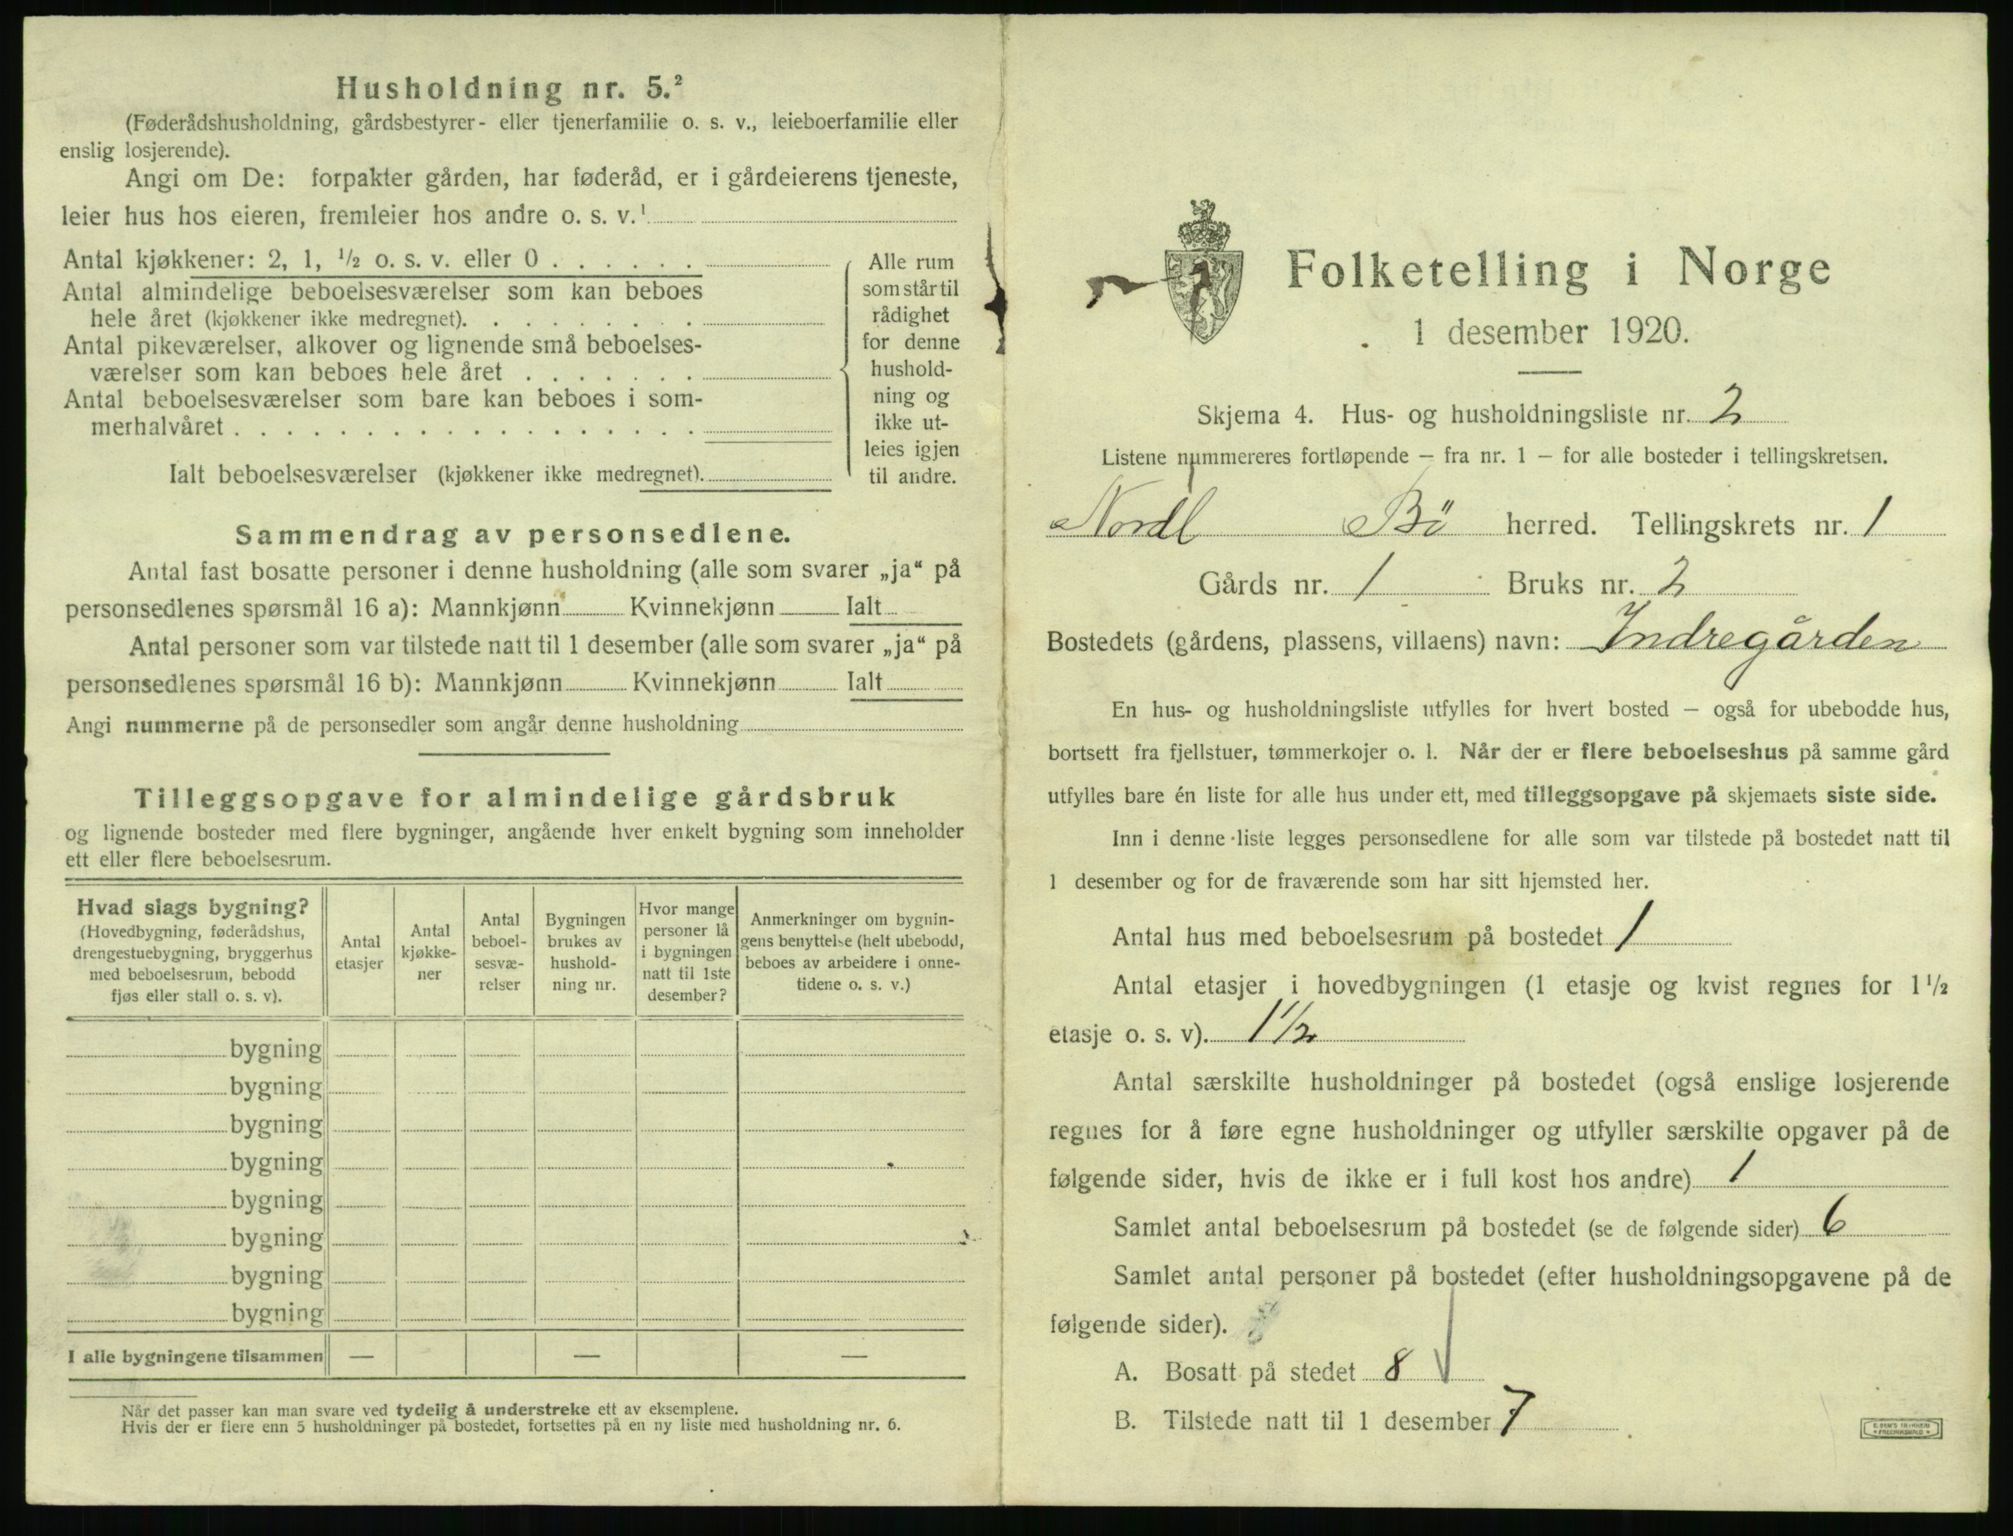 Husholdning nr. 5.²
(Føderådshusholdning, gårdsbestyrer- eller tjenerfamilie o. s. v., leieboerfamilie eller
enslig losjerende).
Angi om De: forpakter gården, har føderåd, er i gårdeierens tjeneste,
leier hus hos eieren, fremleier hos andre o. s. v.¹
Antal kjøkkener: 2, 1, ½ o. s. v. eller 0 . . . . . .
Antal almindelige beboelsesværelser som kan beboes
hele året (kjøkkener ikke medregnet). . . . . . . . .
Antal pikeværelser, alkover og lignende små beboelses-
værelser som kan beboes hele året . . . . . . .
Antal beboelsesværelser som bare kan beboes i som-
merhalvåret . . . . . . . . . . . . . . . . . .
Ialt beboelsesværelser (kjøkkener ikke medregnet).
Alle rum
som står til
rådighet
for denne
hushold-
ning og
ikke ut-
leies igjen
til andre.
Sammendrag av personsedlene.
Antal fast bosatte personer i denne husholdning (alle som svarer „ja“ på
personsedlenes spørsmål 16 a): Mannkjønn Kvinnekjønn Ialt
Antal personer som var tilstede natt til 1 desember (alle som svarer „ja“ på
personsedlenes spørsmål 16 b): Mannkjønn Kvinnekjønn Ialt
Angi nummerne på de personsedler som angår denne husholdning
Tilleggsopgave for almindelige gårdsbruk
og lignende bosteder med flere bygninger, angående hver enkelt bygning som inneholder
ett eller flere beboelsesrum.
Hvad slags bygning?
(Hovedbygning, føderådshus,
drengestuebygning, bryggerhus
med beboelsesrum, bebodd
fjøs eller stall o. s. v).
Antal
etasjer
Antal
kjøkke-
ner
Antal
beboel-
sesvæ-
relser
Bygningen
brukes av
hushold-
ning nr.
Hvor mange
personer lå
i bygningen
natt til 1ste
desember?
Anmerkninger om bygnin-
gens benyttelse (helt ubebodd,
beboes av arbeidere i onne-
tidene o. s. v.)
bygning
bygning
bygning
bygning
bygning
bygning
bygning
bygning
I alle bygningene tilsammen — — —
Når det passer kan man svare ved tydelig å understreke ett av eksemplene.
Hvis der er flere enn 5 husholdninger på bostedet, fortsettes på en ny liste med husholdning nr. 6.
Folketelling i Norge
1 desember 1920.
Skjema 4. Hus- og husholdningsliste nr. 2
Listene nummereres fortløpende — fra nr. 1 — for alle bosteder i tellingskretsen.
Nordl Bö herred. Tellingskrets nr. 1
Gårds nr. 1 Bruks nr. 2
Bostedets (gårdens, plassens, villaens) navn: Indregården
En hus- og husholdningsliste utfylles for hvert bosted — også for ubebodde hus,
bortsett fra fjellstuer, tømmerkojer o. l. Når der er flere beboelseshus på samme gård
utfylles bare én liste for alle hus under ett, med tilleggsopgave på skjemaets siste side.
Inn i denne liste legges personsedlene for alle som var tilstede på bostedet natt til
1 desember og for de fraværende som har sitt hjemsted her.
Antal hus med beboelsesrum på bostedet 1
Antal etasjer i hovedbygningen (1 etasje og kvist regnes for 1½
etasje o. s. v). 1½
Antal særskilte husholdninger på bostedet (også enslige losjerende
regnes for å føre egne husholdninger og utfyller særskilte opgaver på de
følgende sider, hvis de ikke er i full kost hos andre) 1
Samlet antal beboelsesrum på bostedet (se de følgende sider) 6
Samlet antal personer på bostedet (efter husholdningsopgavene på de
følgende sider).
A. Bosatt på stedet 8
B. Tilstede natt til 1 desember 7